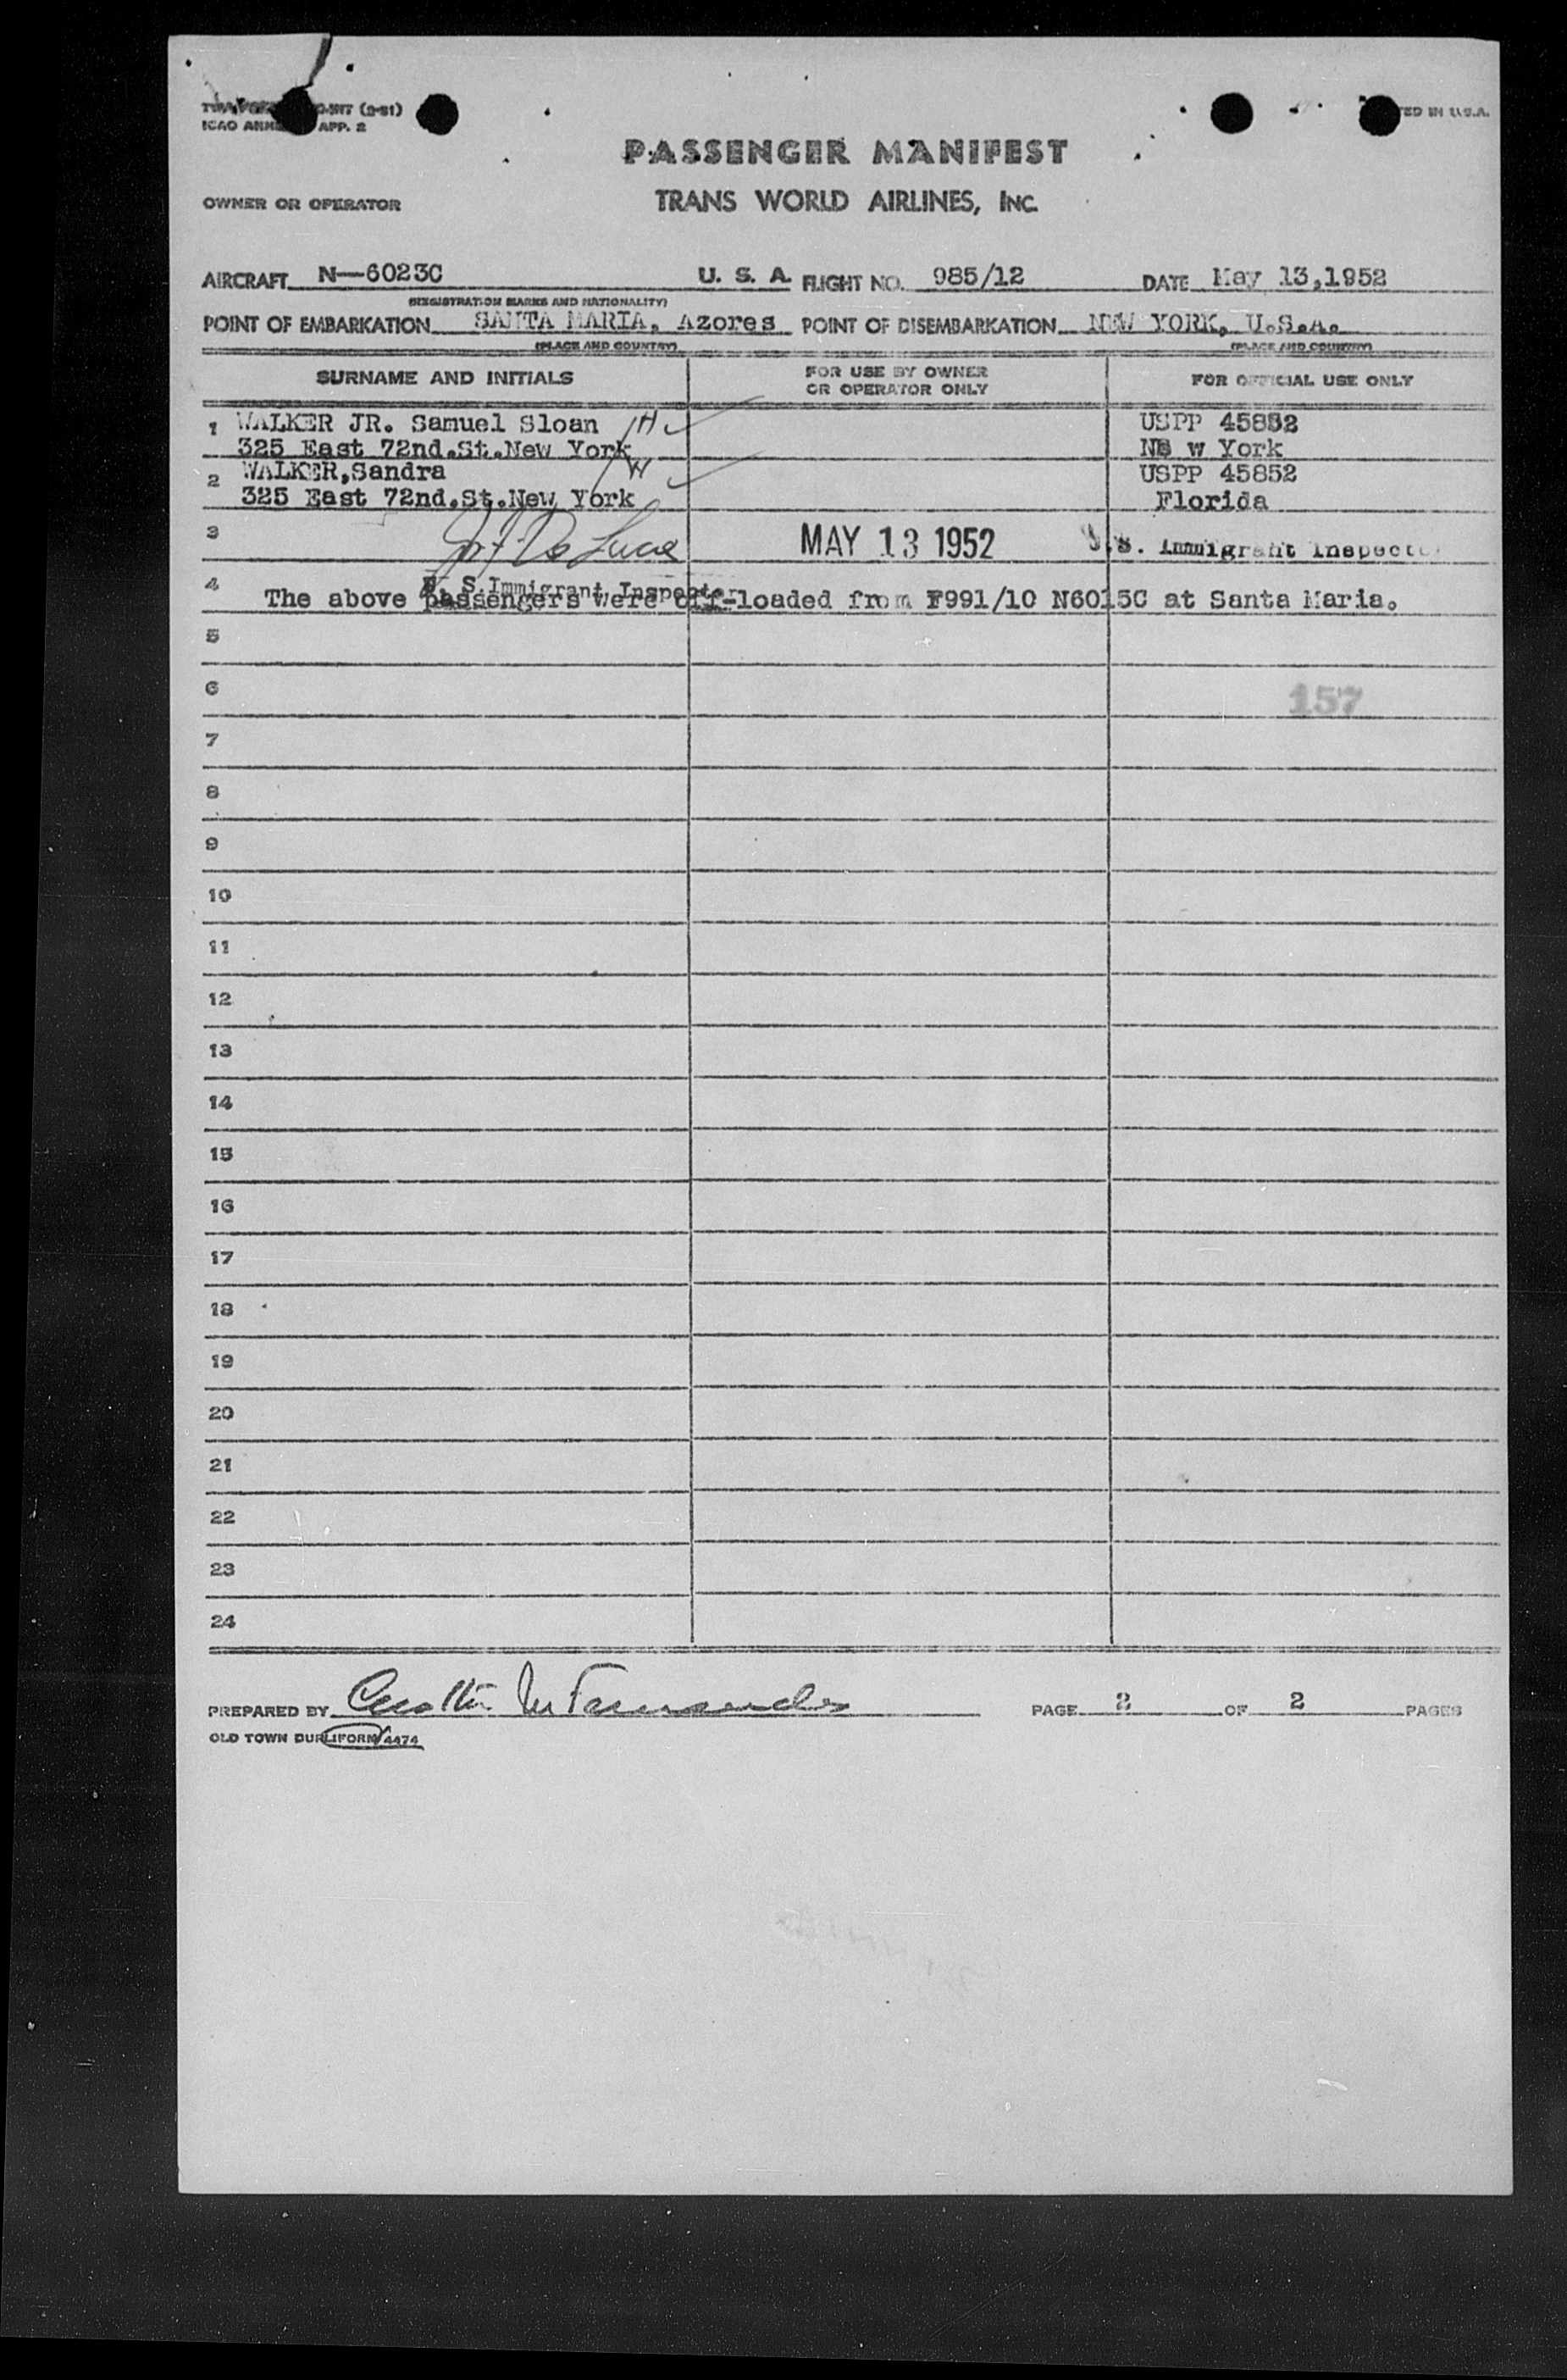 (9-51)
ICAO APP. 2
U.S.A.
PASSENGER MANIFEST
OWNER OR OPERATOR TRANS WORLD AIRLINES, INC.
AIRCRAFT N-6023C U. S. A. FLIGHT NO. 985/12 DATE May 13,1952
(REGISTRATION MARKS AND NATIONALITY)
POINT OF EMBARKATION SANTA MARIA, Azores POINT OF DISEMBARKATION NEW YORK, U.S.A.
(PLACE AND COUNTRY) (PLACE AND COUNTRY)
SURNAME AND INITIALS FOR USE BY OWNER OR OPERATOR ONLY FOR OFFICIAL USE ONLY
1 WALKER JR. Samuel Sloan H USPP 45852
325 East 72nd.St.New York Ne w York
2 WALKER,Sandra W USPP 45852
325 East 72nd.St.New York Florida
3 De Luca MAY 13 1952 U.S. Immigrant Inspector
U. S. Immigrant Inspector
4 The above passengers were off-loaded from F991/10 N6015C at Santa Maria.
5
6 157
7
8
9
10
11
12
13
14
15
16
17
18
19
20
21
22
23
24
PREPARED BY PAGE 2 OF 2 PAGES
OLD TOWN DUPLIFORM 4474